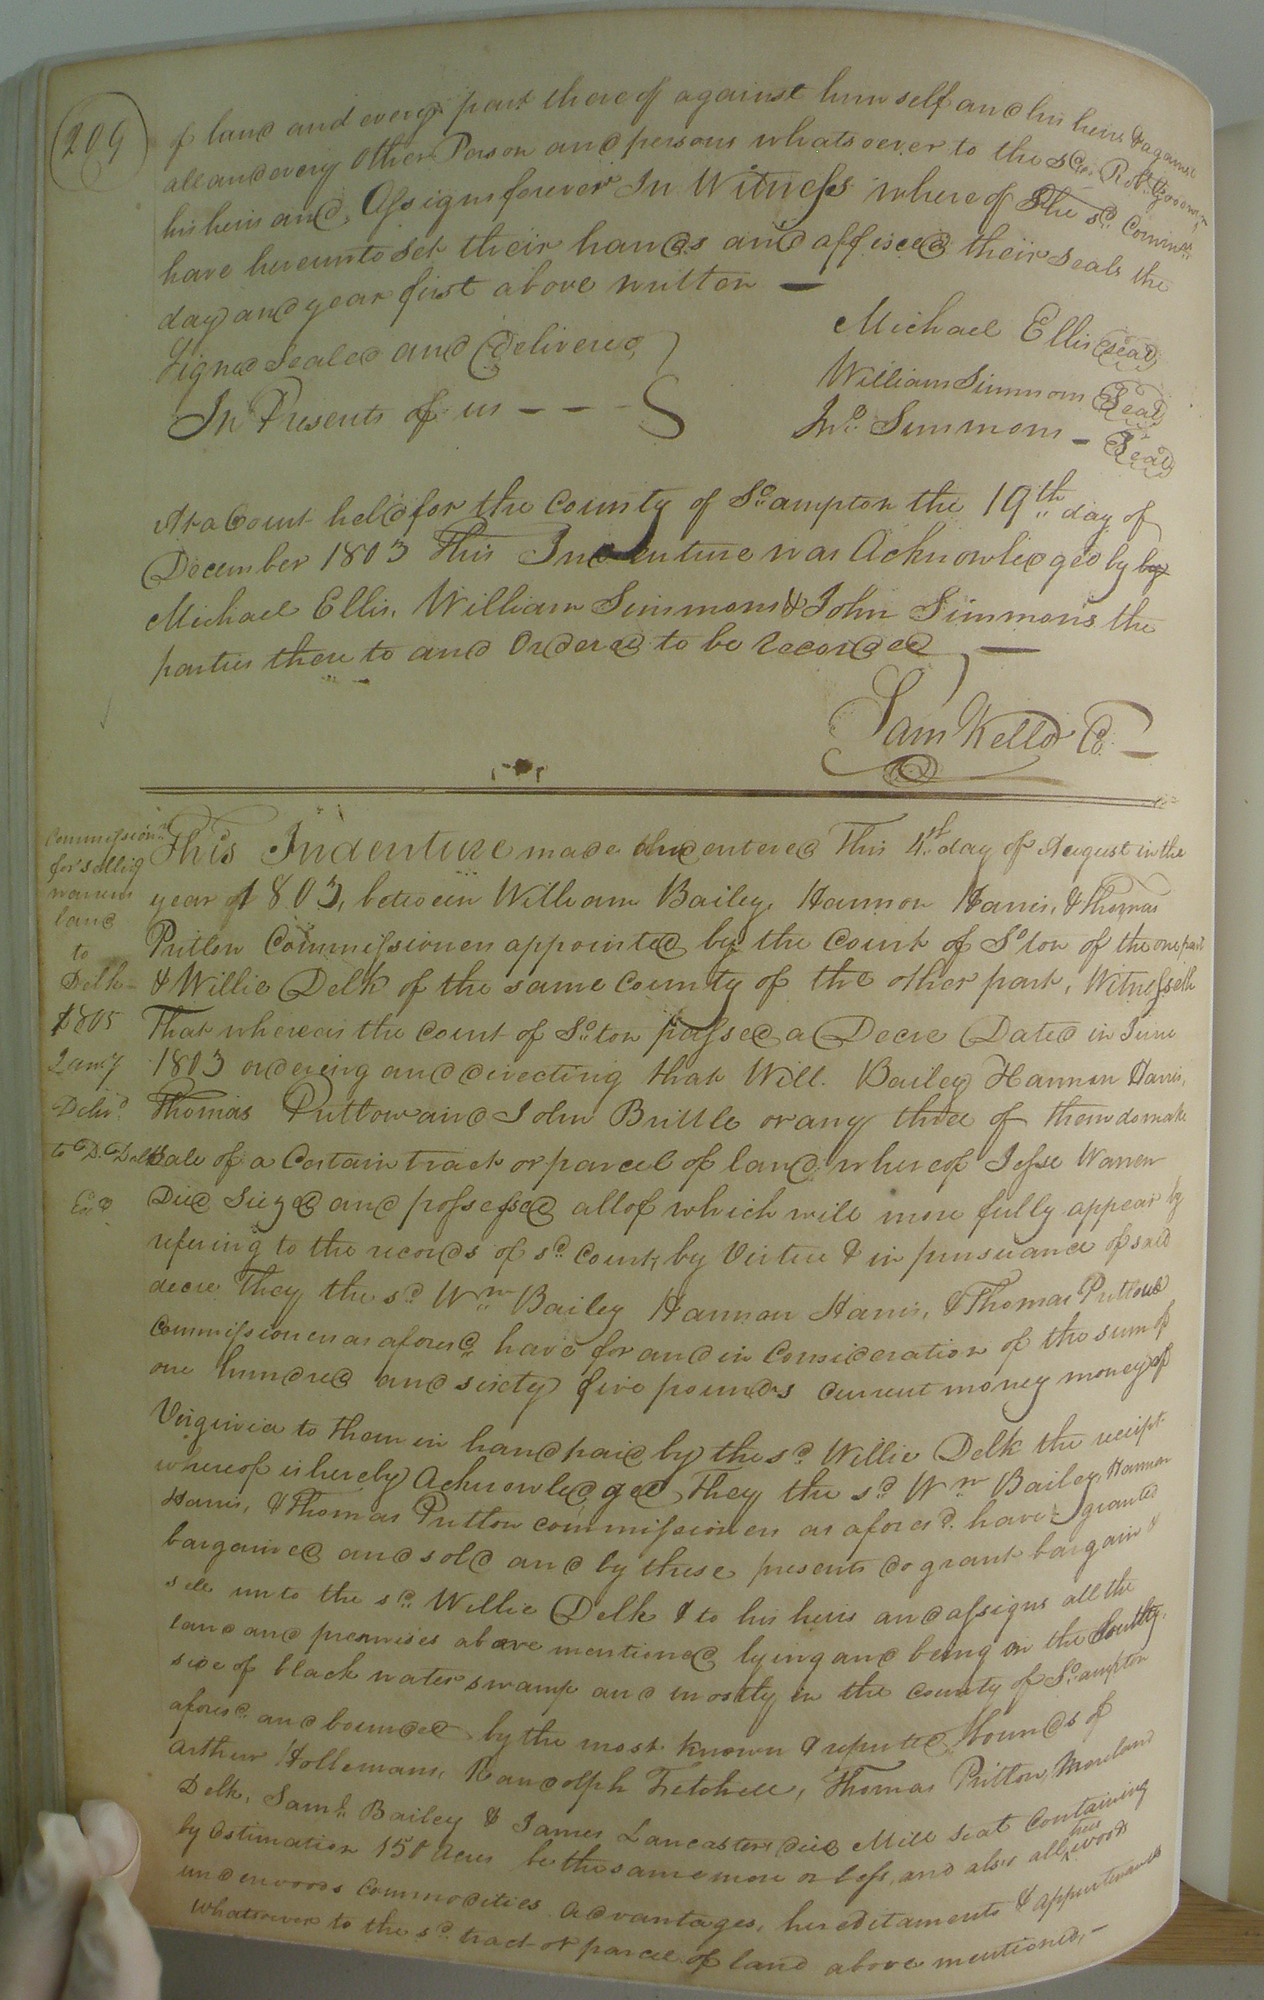 209
of land and every part there of against him self and his heirs & against
all and every other Person and persons whatsoever to the sd.
his heirs and Assigns forever In Witness where of The sd. Commrs.
have hereunto set their hands and affixed their Seals the
day and year first above written —
Signed Sealed and Delivered
In Presents of us - - -
Michael Ellis Seal
William Simmons Seal
Jno. Simmons - Seal
At a Court held for the County of So.ampton the 19th. day of
December 1803 This Indenture was Acknowledged by by
Michael Ellis, William Simmons & John Simmons the
parties there to and Ordered to be Recorded —
Sam Kello C. —
Commissioners
for selling
warrens
land
to
Delk -
1805
Jany
Delivd.
to D. Delk
This Indenture made and entered This 4th. day of August in the
year of 1803, between William Bailey, Hannon Harris, & Thomas
Pretlow Commissioners appointed by the Court of So.ton of the one part
& Willie Delk of the same County of the other part, Witnesseth
That whereas the Court of So.ton passed a Decre Dated in June
1803 ordering and directing that Will. Bailey Hannon Harris,
Thomas Pretlow and John Brittle or any three of them do make
Sale of a Certain track or parcel of land whereof Jesse Warren
Died Siezed and possessed all of which will more fully appear by
refering to the records of sd. Court, by Virtue & in pursuance of said
decre They the sd. Wm. Bailey Hannon Harris, & Thomas Pretlow
Commissioners as aforesd. have for and in Consideration of the sum of
one hundred and sixty five pounds current money money of
Virginia to them in hand paid by the sd. Willie Delk the receipt
whereof is hereby Acknowledged They the sd. Wm. Bailey, Hannon
Harris, & Thomas Pretlow commissioners as aforesd. have granted
bargained and sold and by these presents do grant bargain &
sell unto the sd. Willie Delk & to his heirs and assigns all the
land and premises above mentioned lying and being on the South
side of black water swamp and mostly in the County of So.ampton
aforesd. and bounded by the most known & reputed bounds of
Arthur Hollemans, Randolph Fitchell, Thomas Pretlow, Moreland
Delk, Saml. Bailey & James Lancasters died Mill seat Containing
by Estimation 150 Acres be the same more or less, and also all trees woods
underwoods Commodities Advantages, hereditaments & appurtenances
whatsoever to the sd. tract or parcel of land above mentioned, —